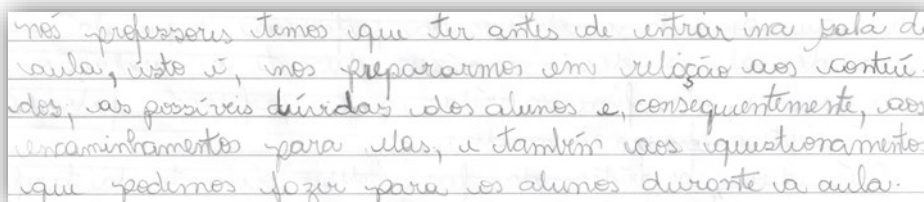 nós professores temos que ter antes de entrar na sala d
aula, isto é, nos prepararmos em relação aos conteú
dos, as possíveis dúvidas dos alunos e, consequentemente, aos
encaminhamentos para elas, e também aos questionamento
que podemos fazer para os alunos durante a aula.